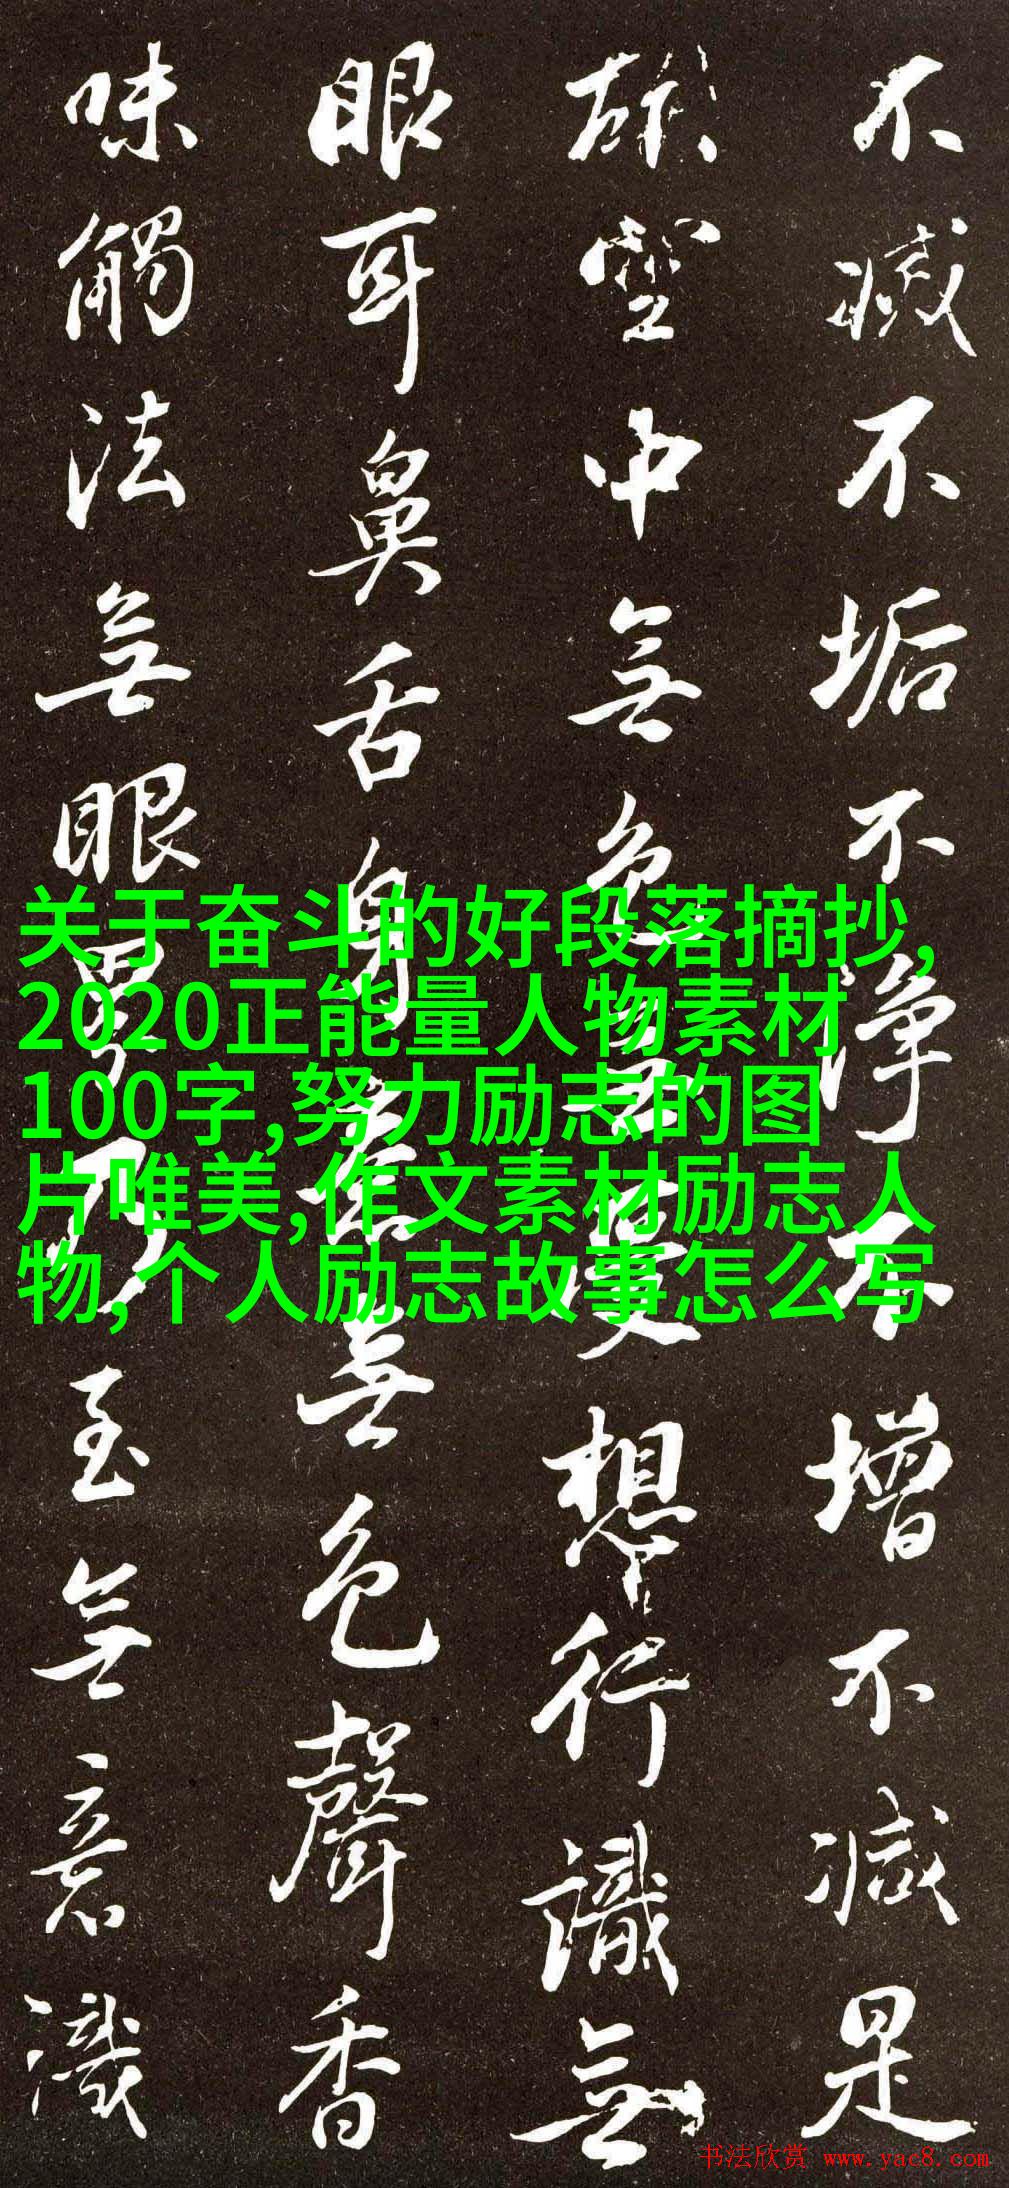 不滅不垢不淨不增不減是
空中無色無受想行識無
眼耳鼻舌身意無色聲香
味觸法無眼界乃至無意識
关于奋斗的好段落摘抄,
2020正能量人物素材
100字,努力励志的图
片唯美,作文素材励志人
物,个人励志故事怎么写
书法欣赏 www.yac8.com